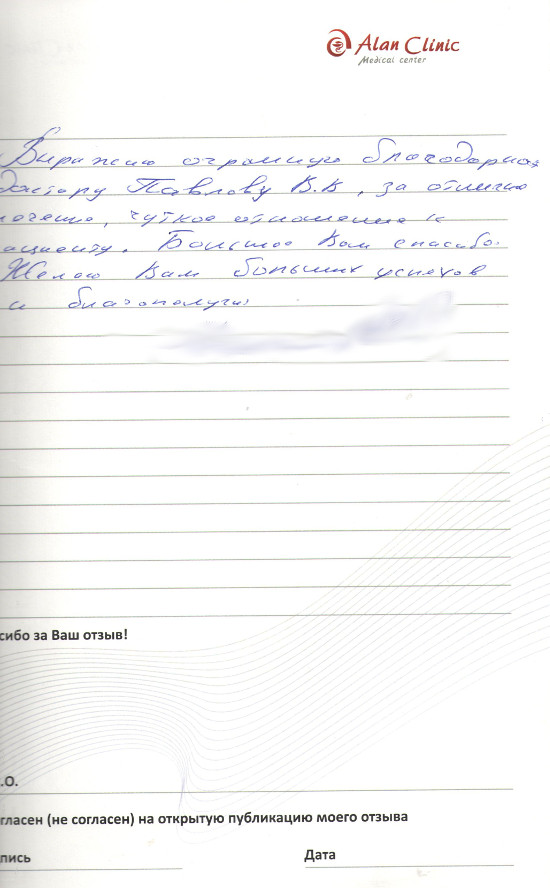 Alan Clinic
Medical center
Выражаю огромную благодарнос
Доктору Павлову В.В, за отлично
лечение, чуткое отношение к
ациенту. Большое Вам спасибо.
Желаю Вам больших успехов
и благополучия
сибо за Ваш отзыв!
.О.
гласен (не согласен) на открытую публикацию моего отзыва
пись Дата